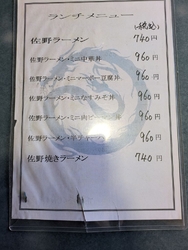 ランチメニュー
(税込)
佐野ラーメン 740円
佐野ラーメン・ミニ中華丼 960円
佐野ラーメン・ミニマーボー豆腐丼 960円
佐野ラーメン・ミニなすみそ丼 960円
佐野ラーメン・ミニ肉ピーマン丼 960円
佐野ラーメン・ 960円
佐野焼きラーメン 740円